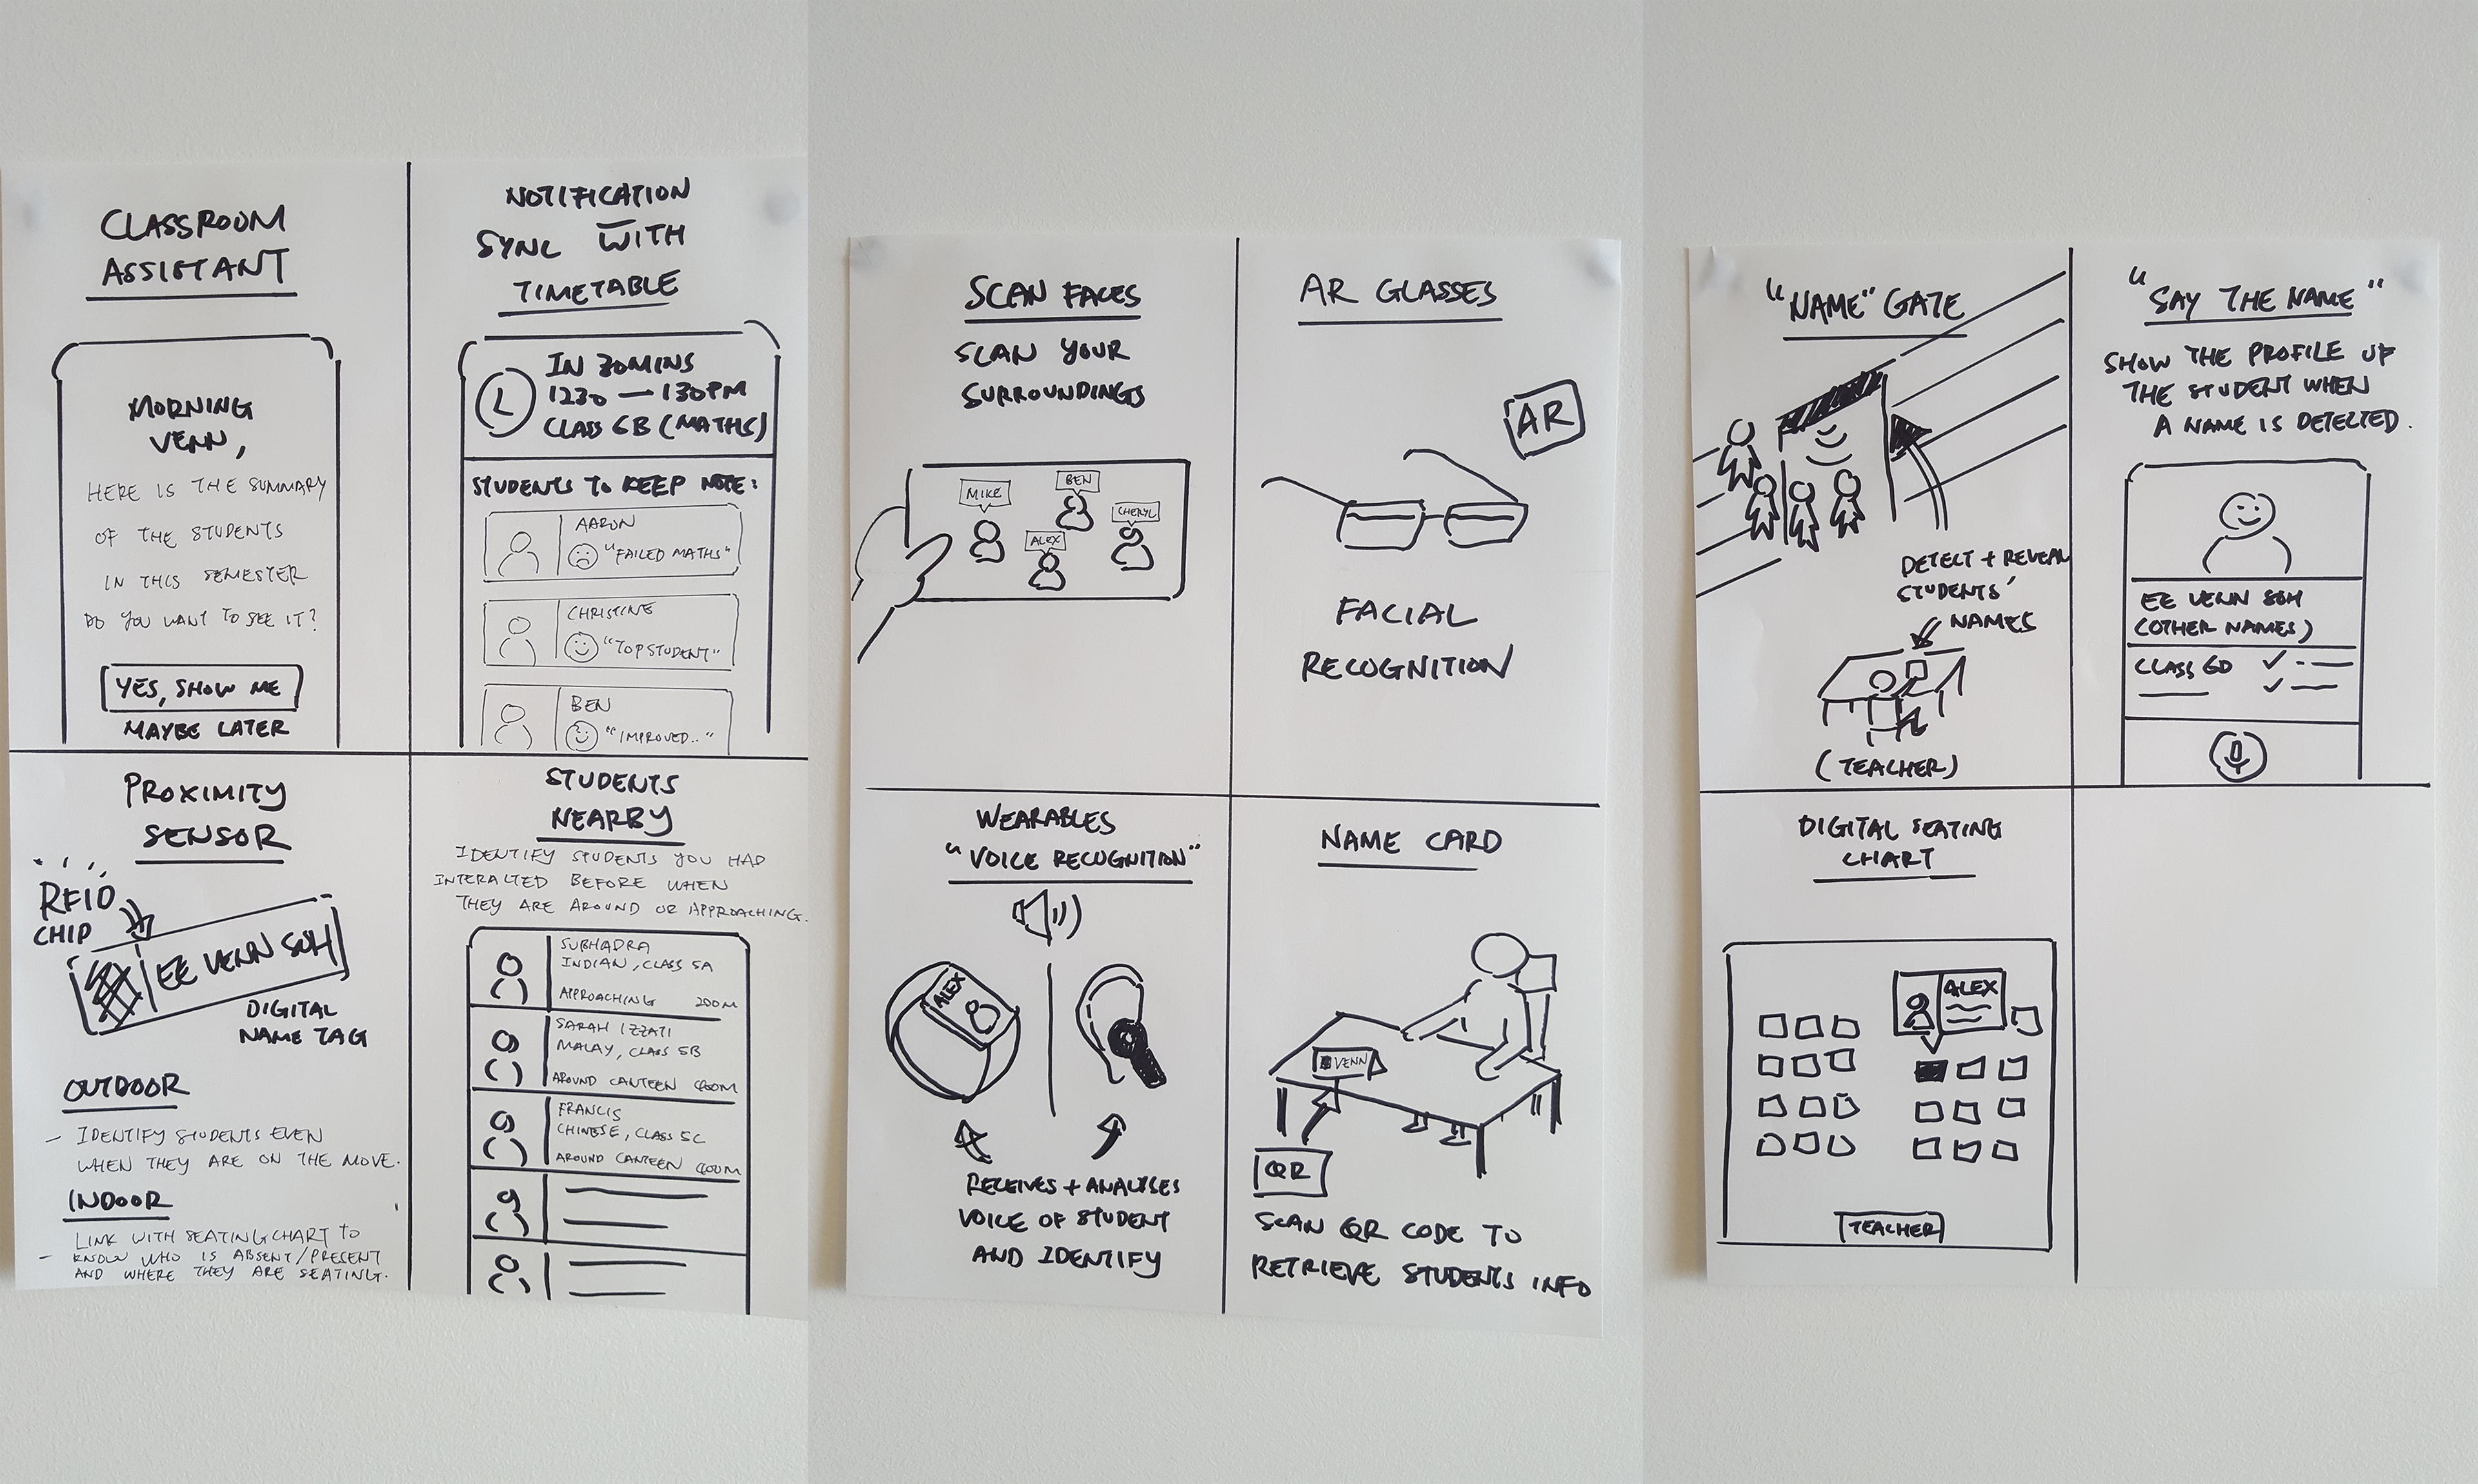 CLASSROOM
ASSISTANT
MORNING
VENN,
HERE IS THE SUMMARY
OF THE STUDENTS
IN THIS SEMESTER
DO YOU WANT TO SEE IT?
YES, SHOW ME
MAYBE LATER
NOTIFICATION
SYNC WITH
TIMETABLE
IN 30MINS
1230 — 130PM
CLASS 6B (MATHS)
STUDENTS TO KEEP NOTE:
AARON
"FAILED MATHS"
CHRISTINE
"TOP STUDENT"
BEN
"IMPROVED.."
PROXIMITY
SENSOR
RFID
CHIP
EE VENN SOH
DIGITAL
NAME TAG
OUTDOOR
- IDENTIFY STUDENTS EVEN
WHEN THEY ARE ON THE MOVE.
INDOOR
LINK WITH SEATING CHART TO
- KNOW WHO IS ABSENT/PRESENT
AND WHERE THEY ARE SEATING.
STUDENTS
NEARBY
IDENTIFY STUDENTS YOU HAD
INTERACTED BEFORE WHEN
THEY ARE AROUND OR APPROACHING.
SUBHADRA
INDIAN, CLASS 5A
APPROACHING 200M
SARAH IZZATI
MALAY, CLASS 5B
AROUND CANTEEN
FRANCIS
CHINESE, CLASS 5C
AROUND CANTEEN
SCAN FACES
SCAN YOUR
SURROUNDINGS
MIKE
BEN
ALEX
CHERYL
AR GLASSES
AR
FACIAL
RECOGNITION
WEARABLES
"VOICE RECOGNITION"
ALEX
RECEIVES + ANALYSES
VOICE OF STUDENT
AND IDENTIFY
NAME CARD
VENN
QR
SCAN QR CODE TO
RETRIEVE STUDENTS INFO
"NAME" GATE
DETECT + REVEAL
STUDENTS'
NAMES
(TEACHER)
"SAY THE NAME"
SHOW THE PROFILE OF
THE STUDENT WHEN
A NAME IS DETECTED.
EE VENN SOH
(OTHER NAMES)
CLASS 6D
DIGITAL SEATING
CHART
ALEX
TEACHER